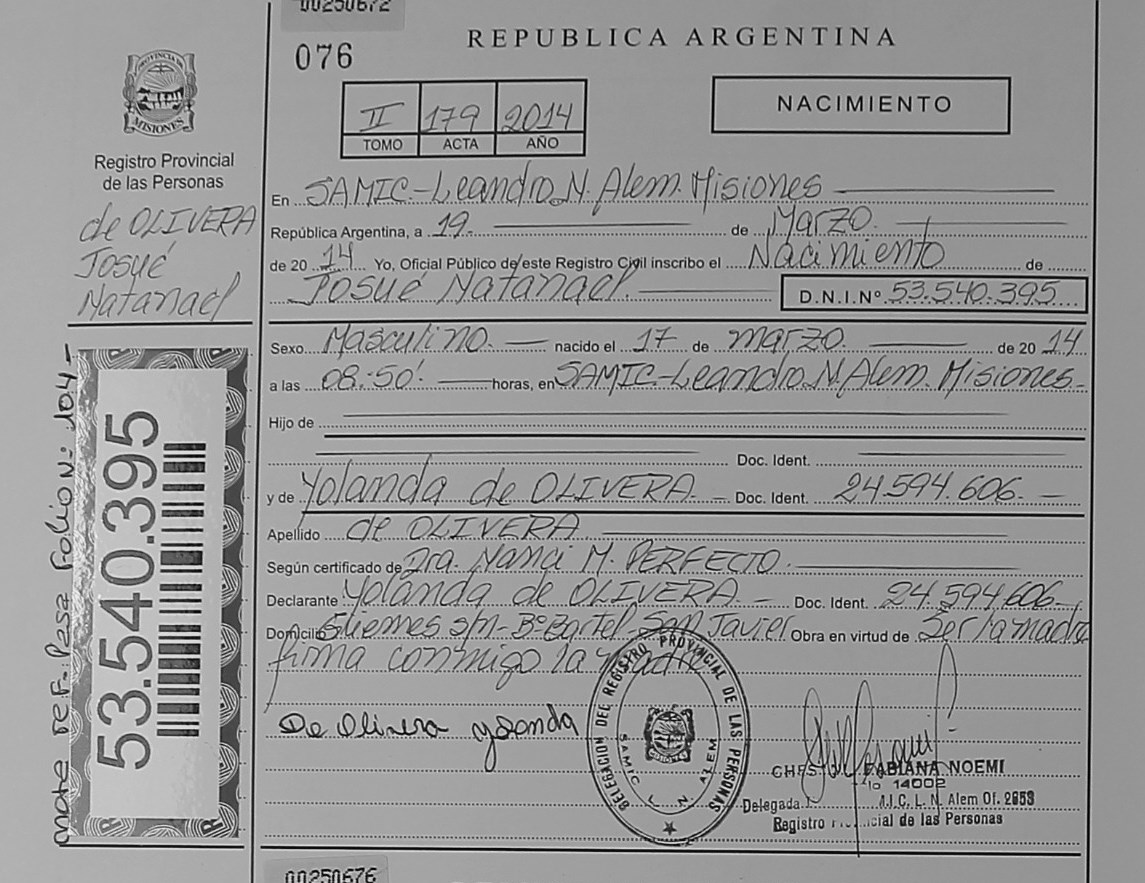 00250672
076
REPUBLICA ARGENTINA
PROVINCIA DE MISIONES
II 179 2014
TOMO ACTA AÑO
NACIMIENTO
Registro Provincial
de las Personas
de OLIVERA
Josué
Natanael
En SAMIC-Leandro N. Alem. Misiones
República Argentina, a 19 de Marzo
de 2014 Yo, Oficial Público de este Registro Civil inscribo el Nacimiento de
Josué Natanael. D.N.I.Nº 53.540.395
Sexo Masculino. nacido el 17 de marzo. de 2014
a las 08:50' horas, en SAMIC-Leandro N. Alem. Misiones
Hijo de
Doc. Ident.
y de Yolanda de OLIVERA Doc. Ident. 24.594.606.
Apellido de OLIVERA
Según certificado de Dra. Nanci M. PERFECTO.
Declarante Yolanda de OLIVERA Doc. Ident. 24.594.606
Domicilio Güemes s/n- Bº Bartel San Javier Obra en virtud de Ser la madre
firma conmigo la madre
De Olivera yolanda
DELEGACION DEL REGISTRO PROVINCIAL DE LAS PERSONAS
SAMIC L. N. ALEM
FABIANA NOEMI
14002
Delegada L. N. Alem Of. 2653
Registro Provincial de las Personas
53.540.395
Folio Nº 104
00250676